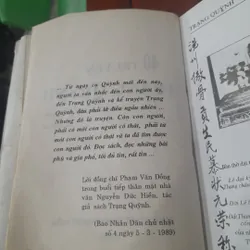 Từ ngày có Quỳnh mới đến nay,
người ta vẫn nhắc đến con người ấy,
đến Trạng Quỳnh và kể truyện Trạng
Quỳnh, đâu phải từ điều ngẫu nhiên ...
Nhưng đó là truyện. Còn con người,
phải có một con người có thật, phải có
một con người có thật thì ta đi tìm được
con người đó. Đọc tách, đọc những bài
phú và gia phả, tôi đã tin, rất tin ...
Lời đồng chí Phạm Văn Đồng
trong buổi tiếp thân mật nhà
văn Nguyễn Đức Hiền, tác
giả sách Trạng Quỳnh.
(Báo Nhân Dân chủ nhật
số 4 ngày 5 - 3 - 1989)
TRẠNG QUỲNH
骨
貢
生
民
某
狀
元
榮